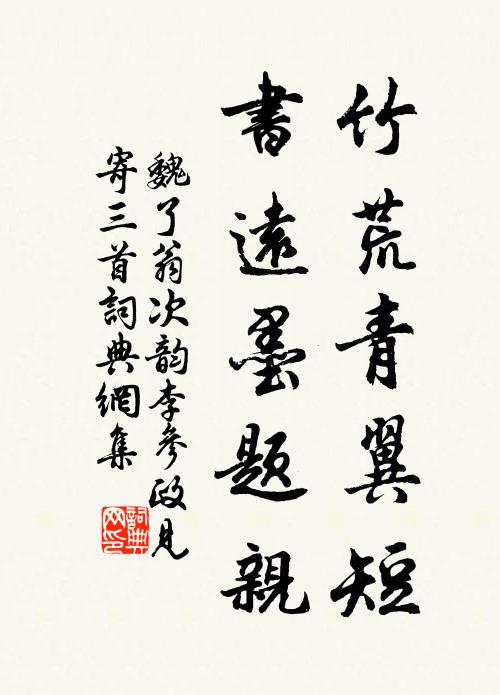 竹荒青翼短
書遠墨題親
魏了翁次韵李參政見
寄三首詞典網集
詞典网印